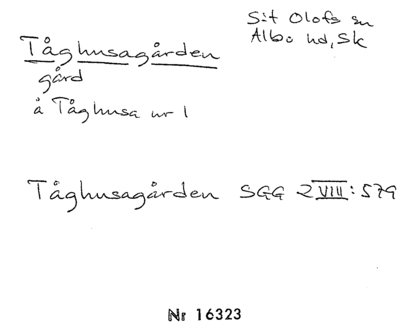 Tåghusagården
S:t Olofs sn
Albo hd, Sk
gård
å Tåghusa nr 1
Tåghusagården SGG 2 VIII: 579
Nr 16323